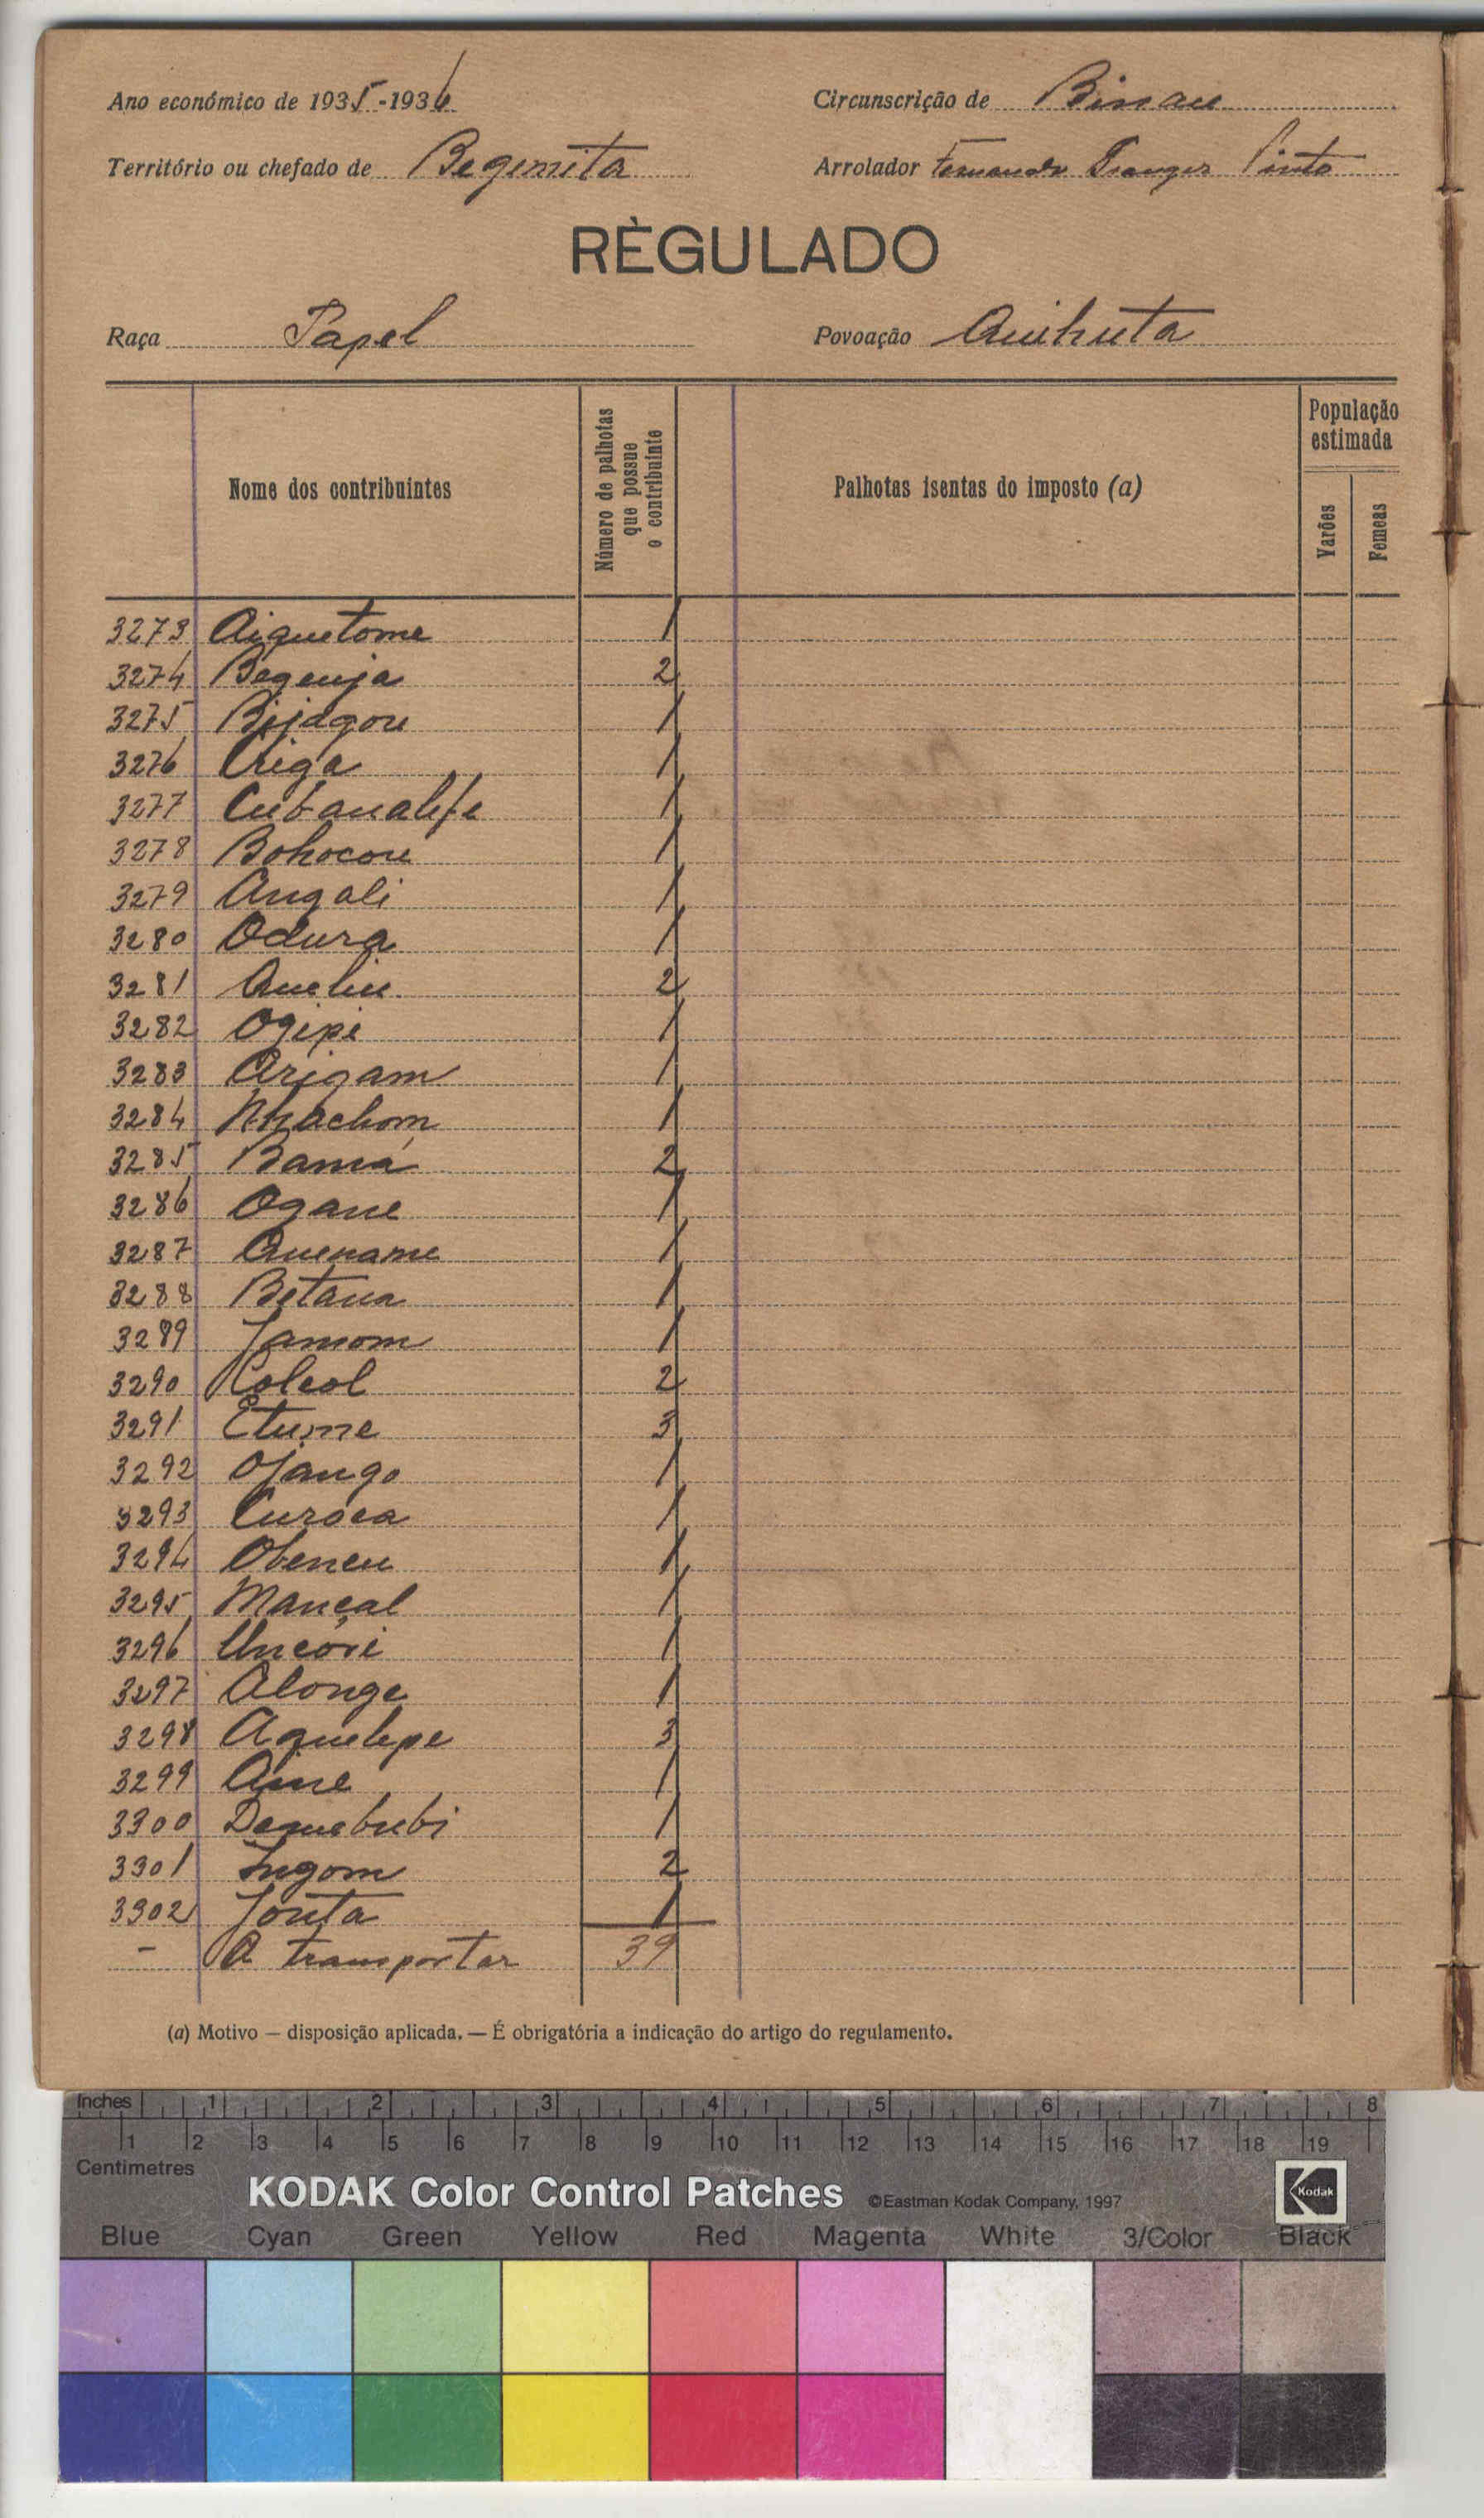 Ano económico de 1935-1936 Circunscrição de Bissau
Território ou chefado de Begemita Arrolador Fernando Pinto
RÈGULADO
Raça Papel Povoação Quihuta
Nome dos contribuintes
Número de palhotas que possue o contribuinte
Palhotas isentas do imposto (a)
População estimada
Varões Femeas
3273 Aiquetome 1
3274 Begenja 2
3275 Bijagou 1
3276 Criga 1
3277 Cubanalife 1
3278 Bohocou 1
3279 Angali 1
3280 Odura 1
3281 Queliu 2
3282 Ogipi 1
3283 Arigam 1
3284 Nhachom 1
3285 Bamá 2
3286 Ogane 1
3287 Quename 1
3288 Betana 1
3289 Jamom 1
3290 Coleol 2
3291 Etume 3
3292 Ojango 1
3293 Curóca 1
3294 Obeneu 1
3295 Mançal 1
3296 Uncóri 1
3297 Alonge 1
3298 Aquelepe 3
3299 Aine 1
3300 Dequebubi 1
3301 Ingom 2
3302 Jonta 1
- A transportar 39
(a) Motivo — disposição aplicada. — É obrigatória a indicação do artigo do regulamento.
Inches 1 2 3 4 5 6 7 8
1 2 3 4 5 6 7 8 9 10 11 12 13 14 15 16 17 18 19
Centimetres
KODAK Color Control Patches ©Eastman Kodak Company, 1997 Kodak
Blue Cyan Green Yellow Red Magenta White 3/Color Black